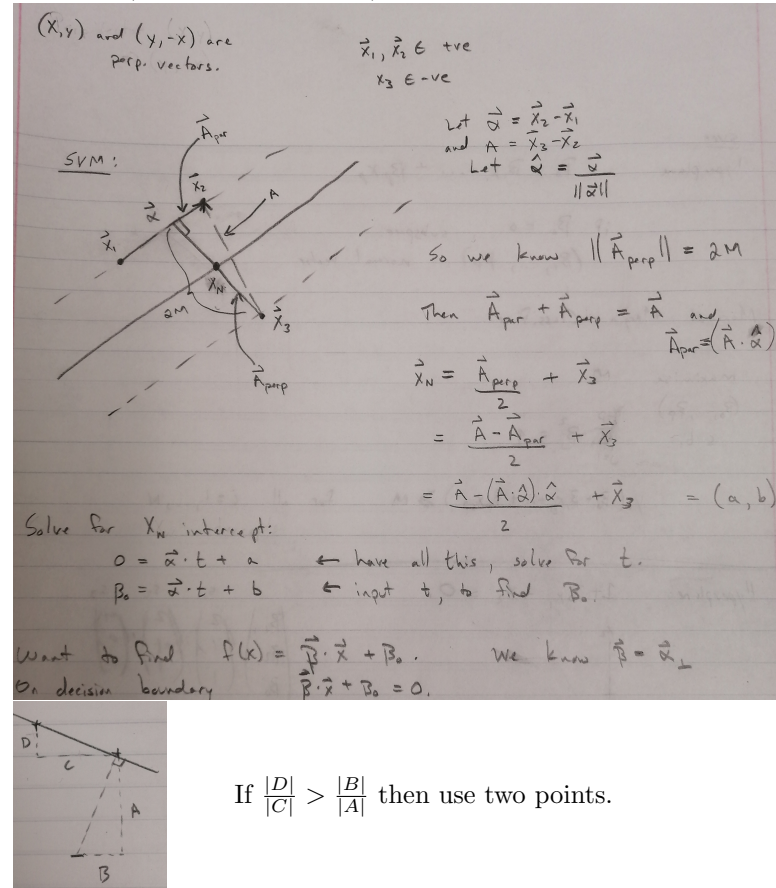 (x,y) and (y,-x) are
perp. vectors.
x⃗₁, x⃗₂ ∈ +ve
x₃ ∈ -ve
Let α⃗ = x⃗₂ - x⃗₁
and A = x⃗₃ - x⃗₂
Let α̂ = α⃗ / ||α⃗||
SVM:
A⃗par
x⃗₂
A
α⃗
x⃗₁
x_N
2M
x⃗₃
A⃗perp
So we know ||A⃗perp|| = 2M
Then A⃗par + A⃗perp = A⃗ and
A⃗par = (A⃗ · α̂)
x⃗_N = A⃗perp / 2 + x⃗₃
= (A⃗ - A⃗par) / 2 + x⃗₃
= (A⃗ - (A⃗·α̂)·α̂) / 2 + x⃗₃ = (a, b)
Solve for x_N intercept:
0 = α⃗ · t + a ← have all this, solve for t.
β₀ = α⃗ · t + b ← input t, to find β₀.
Want to find f(x) = β⃗ · x⃗ + β₀. We know β⃗ = α⃗⊥
On decision boundary β⃗ · x⃗ + β₀ = 0.
D
C
A
B
If |D|/|C| > |B|/|A| then use two points.